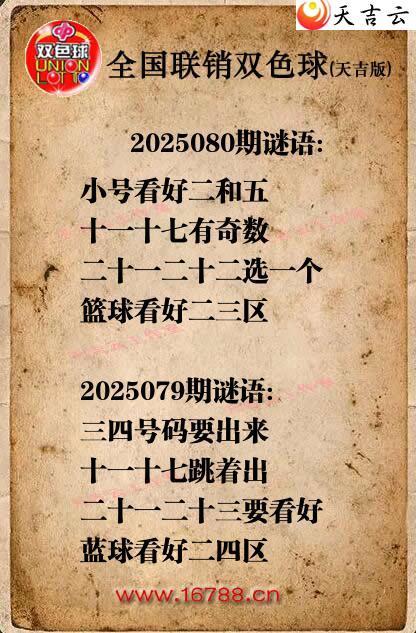 天吉云
双色球
UNION
LOTTO
全国联销双色球(天吉版)
2025080期谜语:
小号看好二和五
十一十七有奇数
二十一二十二选一个
篮球看好二三区
2025079期谜语:
三四号码要出来
十一十七跳着出
二十一二十三要看好
蓝球看好二四区
www.16788.cn